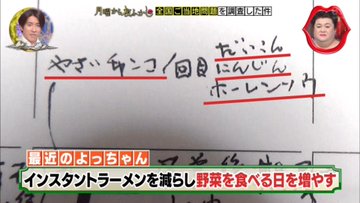 月曜から夜ふかし
全国ご当地問題を調査した件
やさいチャンコ1回目
だいこん
にんじん
ホーレンソウ
最近のよっちゃん
インスタントラーメンを減らし野菜を食べる日を増やす